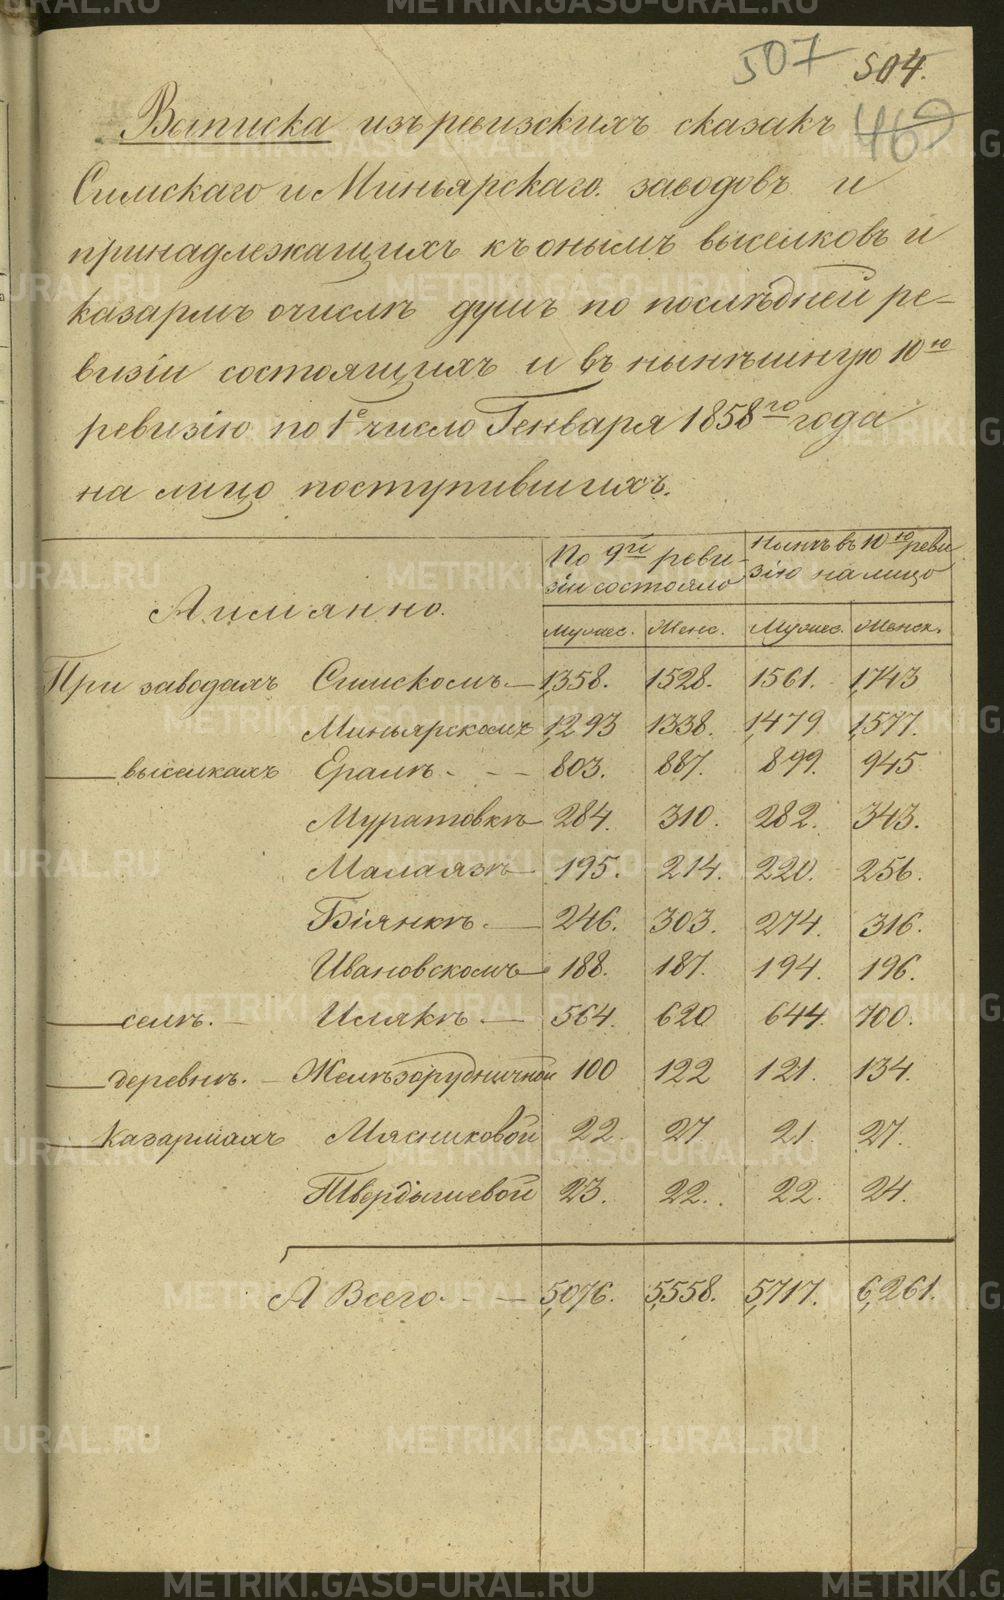 507 504.
469
Выписка изъ ревизскихъ сказакъ
Симскаго и Миньярскаго заводовъ и
принадлежащихъ къ онымъ выселковъ и
казармъ о числѣ душъ по послѣдней ре-
визіи состоящихъ и въ нынѣшнюю 10ю
ревизію по 1е число Генваря 1858го года
на лицо поступившихъ.
По 9й реви- Нынѣ въ 10ю реви
зіи состояло зію на лицо
А имянно.
Мужес. Женс. Мужес. Женск.
При заводахъ Симскомъ — 1,358. 1528. 1561. 1,743
Миньярскомъ 1,293 1338. 1,479 1,577.
— выселкахъ Ералѣ - - - 803. 887. 899. 945
Муратовкѣ — 284. 310. 282. 343.
Малаязѣ — 195. 214. 220. 256.
Біянкѣ. — 246. 303. 274. 316.
Ивановскомъ — 188. 187. 194. 196.
— селѣ. — Илякѣ — 564. 620 644. 700.
— деревнѣ. — Желѣзорудничной 100 122 121. 134.
— Казармахъ Мясниковой 22. 27 21. 27.
Твердышевой 23. 22. 22. 24.
А Всего - - - 5,076. 5,558. 5,717. 6,261.
METRIKI.GASO-URAL.RU